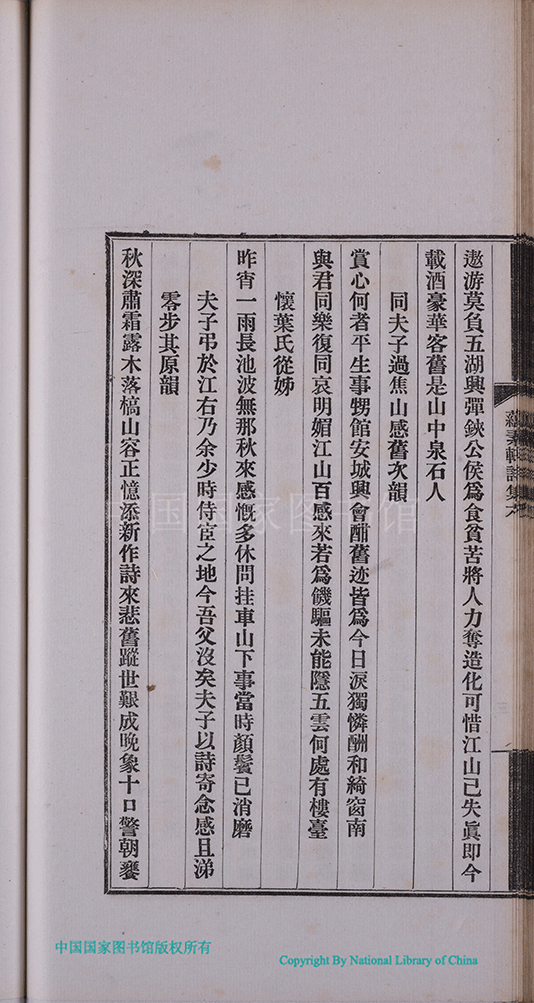 遨游莫負五湖興彈鋏公侯爲食貧苦將人力奪造化可惜江山已失眞即今
載酒豪華客舊是山中泉石人
同夫子過焦山感舊次韻
賞心何者平生事甥館安城興會酣舊迹皆爲今日淚獨憐酬和綺窗南
與君同樂復同哀明媚江山百感來若爲饑驅未能隱五雲何處有樓臺
懷葉氏從姊
昨宵一雨長池波無那秋來感慨多休問挂車山下事當時顏鬢已消磨
夫子弔於江右乃余少時侍宦之地今吾父沒矣夫子以詩寄念感且涕
零步其原韻
秋深肅霜露木落槁山容正憶添新作詩來悲舊蹤世艱成晚象十口警朝饔
蘊素軒詩集六
中国国家图书馆
中国国家图书馆版权所有
Copyright By National Library of China